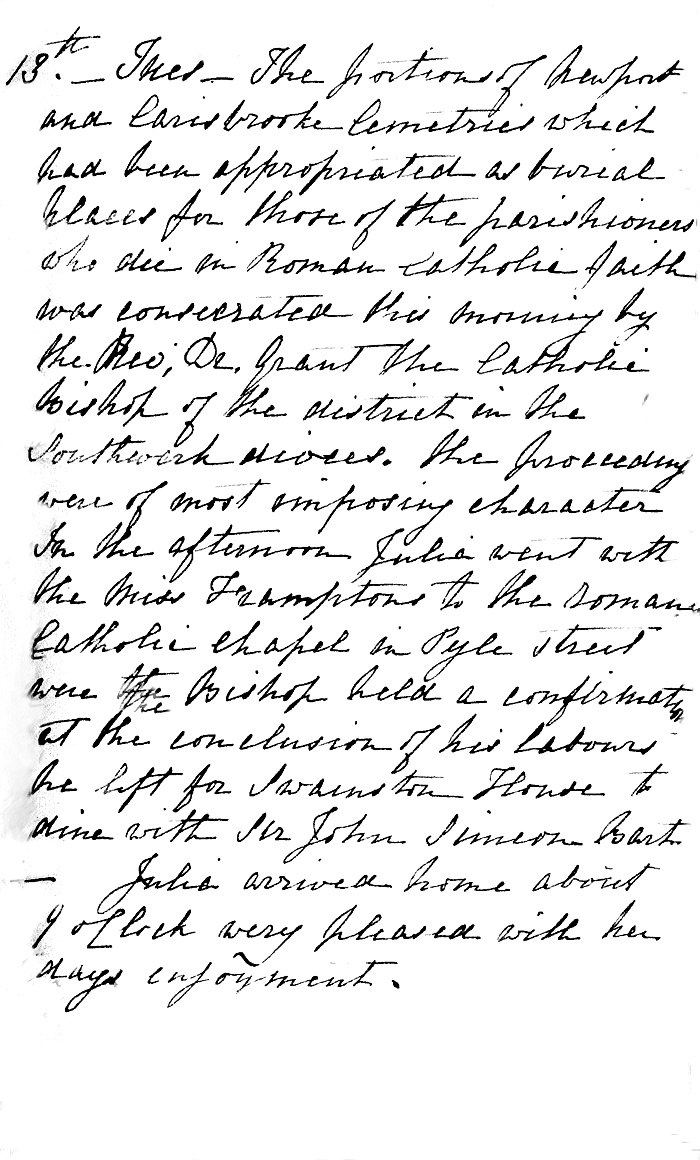 13th. — Tues — The portions of Newport
and Carisbrooke Cemetries which
had been appropriated as burial
places for those of the parishioners
who die in Roman Catholic faith
was consecrated this morning by
the Rev; Dr. Grant the Catholic
Bishop of the district in the
Southwark dioces. the proceeding
were of most imposing character
In the afternoon Julia went with
the Miss Framptons to the roman
Catholic chapel in Pyle street
were the the Bishop held a confirmatn
at the conclusion of his labours
he left for Swainston House to
dine with Sir John Simeon Bart.
— Julia arrived home about
9 oClock very pleased with her
days enjoyment.